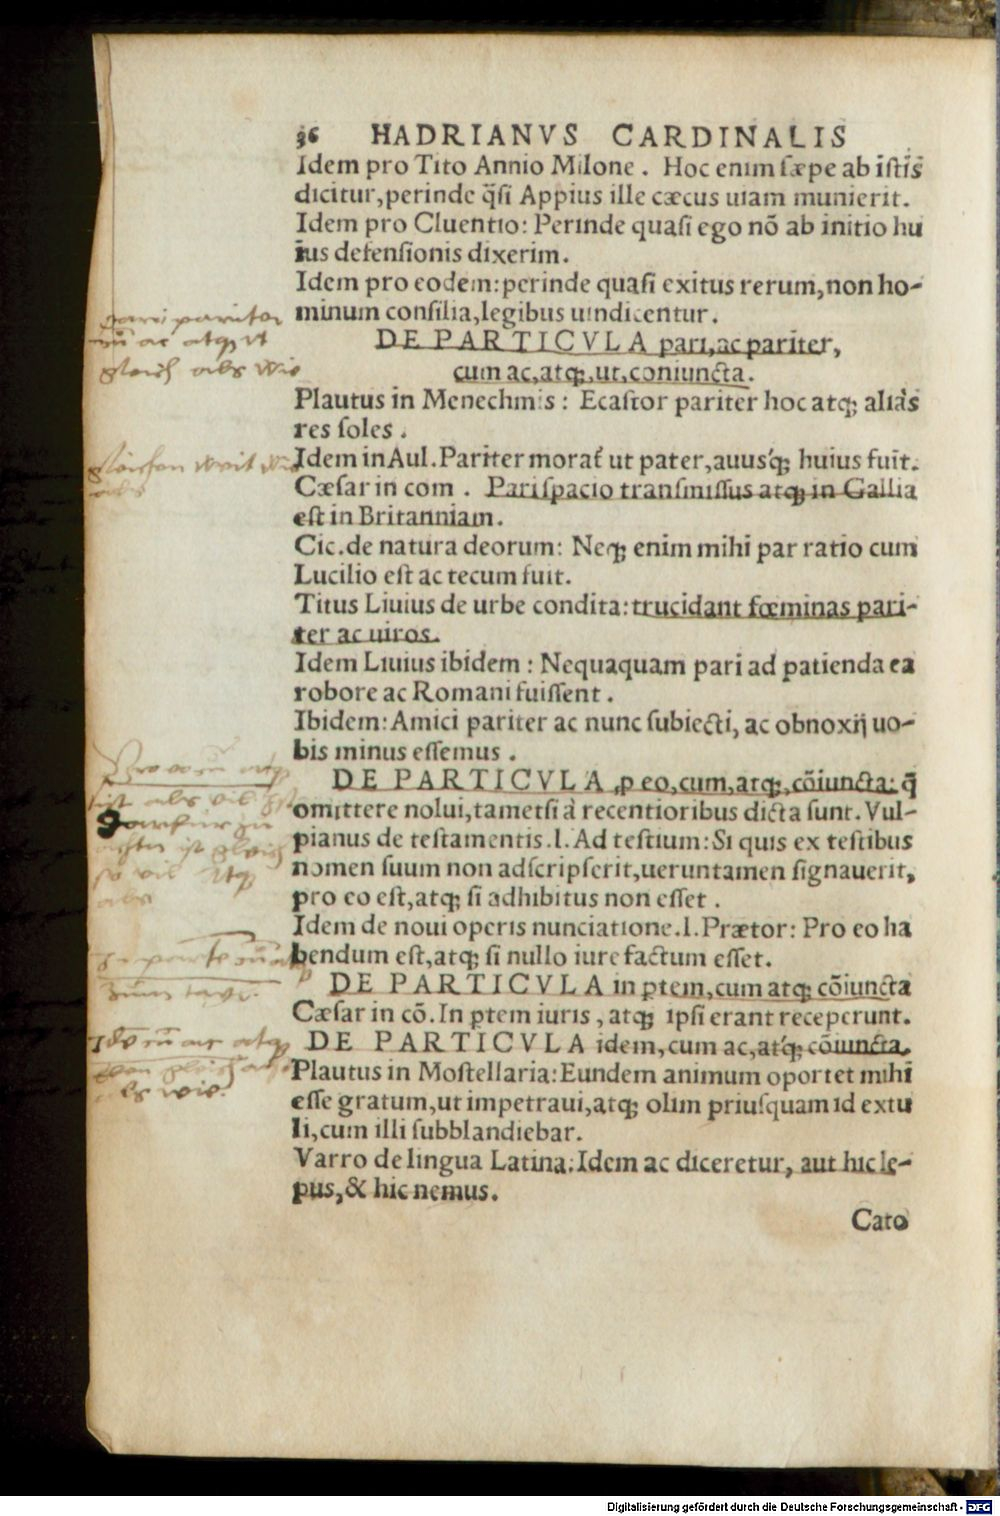 36 HADRIANVS CARDINALIS
Idem pro Tito Annio Milone. Hoc enim sæpe ab iſtĩs
dicitur, perinde q̃ſi Appius ille cæcus uiam munierit.
Idem pro Cluentio: Perinde quaſi ego nõ ab initio hu
ius defenſionis dixerim.
Idem pro eodem: perinde quaſi exitus rerum, non ho-
minum conſilia, legibus uindicentur.
DE PARTICVLA pari, ac pariter,
cum ac, atq;, ut, coniuncta.
Plautus in Menechmis: Ecaſtor pariter hoc atq; aliàs
res ſoles.
Idem in Aul. Pariter morat̃ ut pater, auusq́; huius fuit.
Cæſar in com. Pari ſpacio tranſmiſſus atq; in Gallia
eſt in Britanniam.
Cic. de natura deorum: Neq; enim mihi par ratio cum
Lucilio eſt ac tecum fuit.
Titus Liuius de urbe condita: trucidant fœminas pari-
ter ac uiros.
Idem Liuius ibidem: Nequaquam pari ad patienda ea
robore ac Romani fuiſſent.
Ibidem: Amici pariter ac nunc ſubiecti, ac obnoxij uo-
bis minus eſſemus.
DE PARTICVLA ꝓ eo, cum, atq;, cõiuncta: q̃
omittere nolui, tametſi à recentioribus dicta ſunt. Vul-
pianus de teſtamentis. l. Ad teſtium: Si quis ex teſtibus
nomen ſuum non adſcripſerit, ueruntamen ſignauerit,
pro eo eſt, atq; ſi adhibitus non eſſet.
Idem de noui operis nunciatione. l. Prætor: Pro eo ha
bendum eſt, atq; ſi nullo iure factum eſſet.
DE PARTICVLA in ꝑtem, cum atq; cõiuncta
Cæſar in cõ. In ꝑtem iuris, atq; ipſi erant receperunt.
DE PARTICVLA idem, cum ac, atq́; cõiuncta.
Plautus in Moſtellaria: Eundem animum oportet mihi
eſſe gratum, ut impetraui, atq; olim priuſquam id extu
li, cum illi ſubblandiebar.
Varro de lingua Latina: Idem ac diceretur, aut hic le-
pus, & hic nemus.
Cato
pari pariter
cũ ac atq; vt
gleich als wie
Digitalisierung gefördert durch die Deutsche Forschungsgemeinschaft - DFG